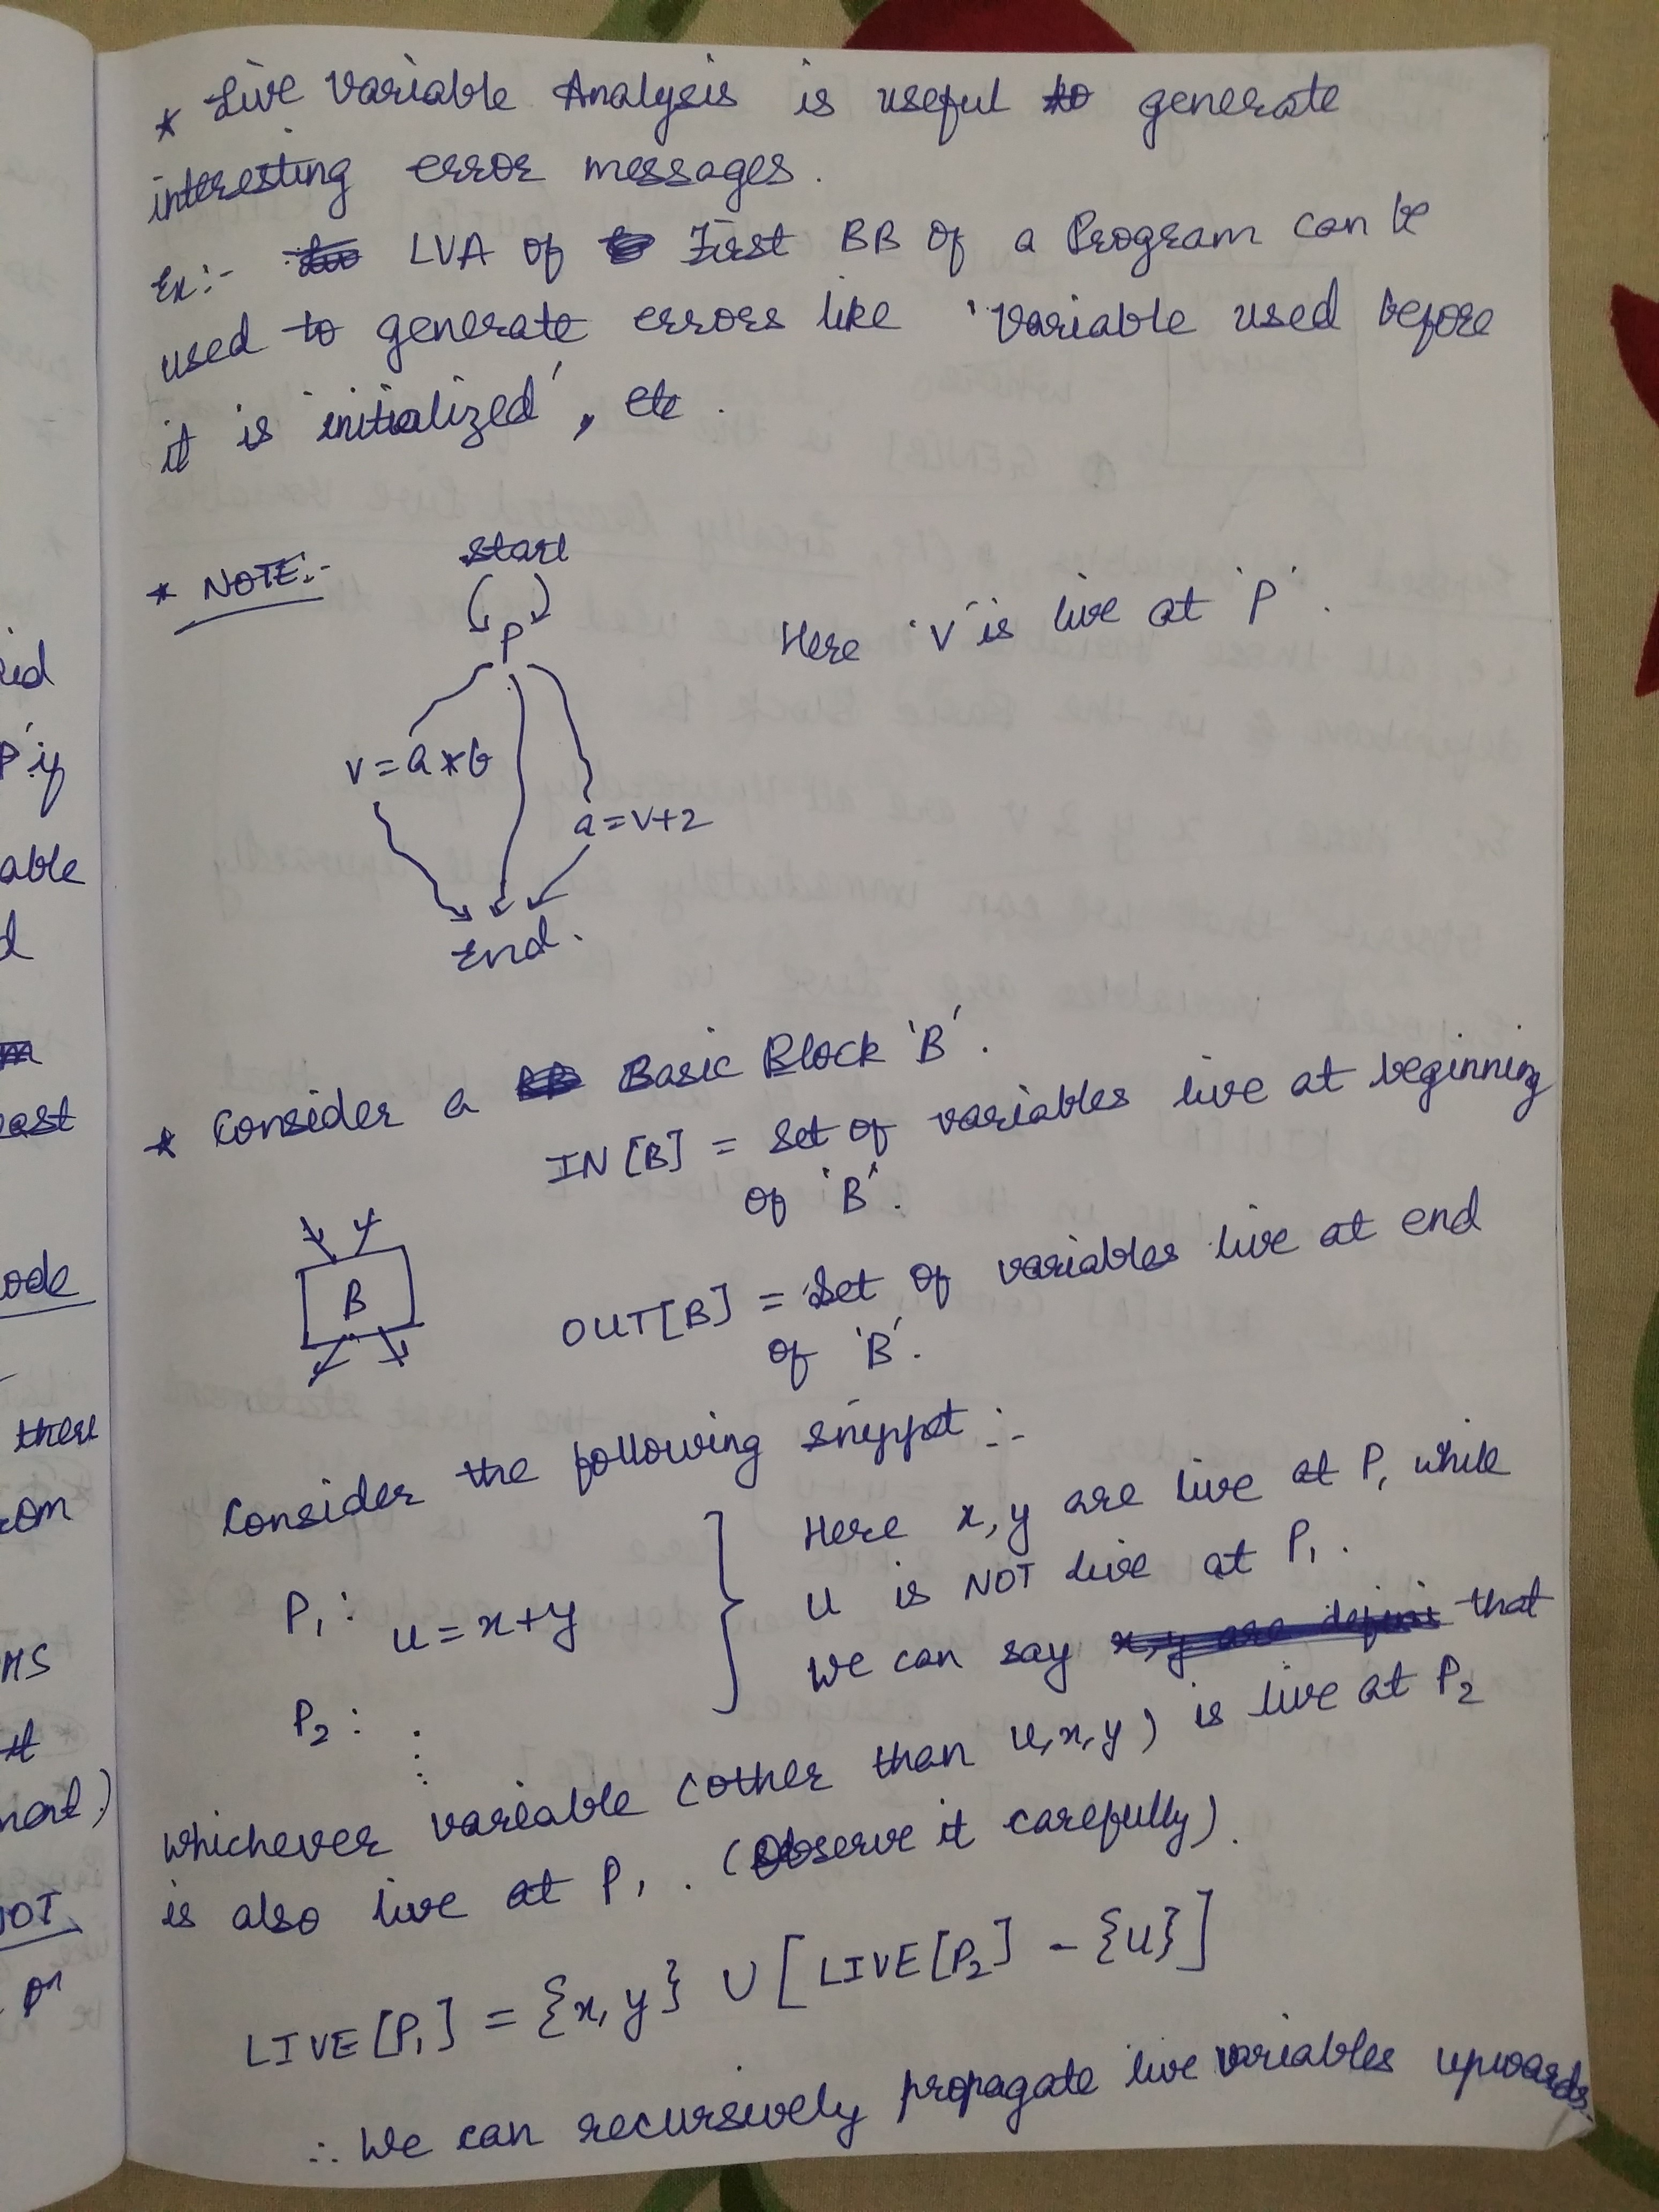 * Live Variable Analysis is useful to generate
interesting error messages.
Ex:- LVA of First BB of a Program can be
used to generate errors like 'Variable used before
it is initialized', etc.
* NOTE:-
start
P
Here 'V' is live at 'P'.
v = a * b
a = v+2
End.
* Consider a Basic Block 'B'.
IN [B] = Set of variables live at beginning
of 'B'.
B
OUT[B] = Set of variables live at end
of 'B'.
Consider the following snippet :-
P1 : u = x+y
P2 : ⋮
Here x, y are live at P1 while
u is NOT live at P1.
We can say x, y are that
whichever variable (other than u, x, y) is live at P2
is also live at P1. (Observe it carefully).
LIVE [P1] = {x, y} ∪ [LIVE[P2] - {u}]
∴ We can recursively propagate live variables upwards.
ied
P' if
able
d
east
ode
there
rom
MS
it
ment)
NOT
or